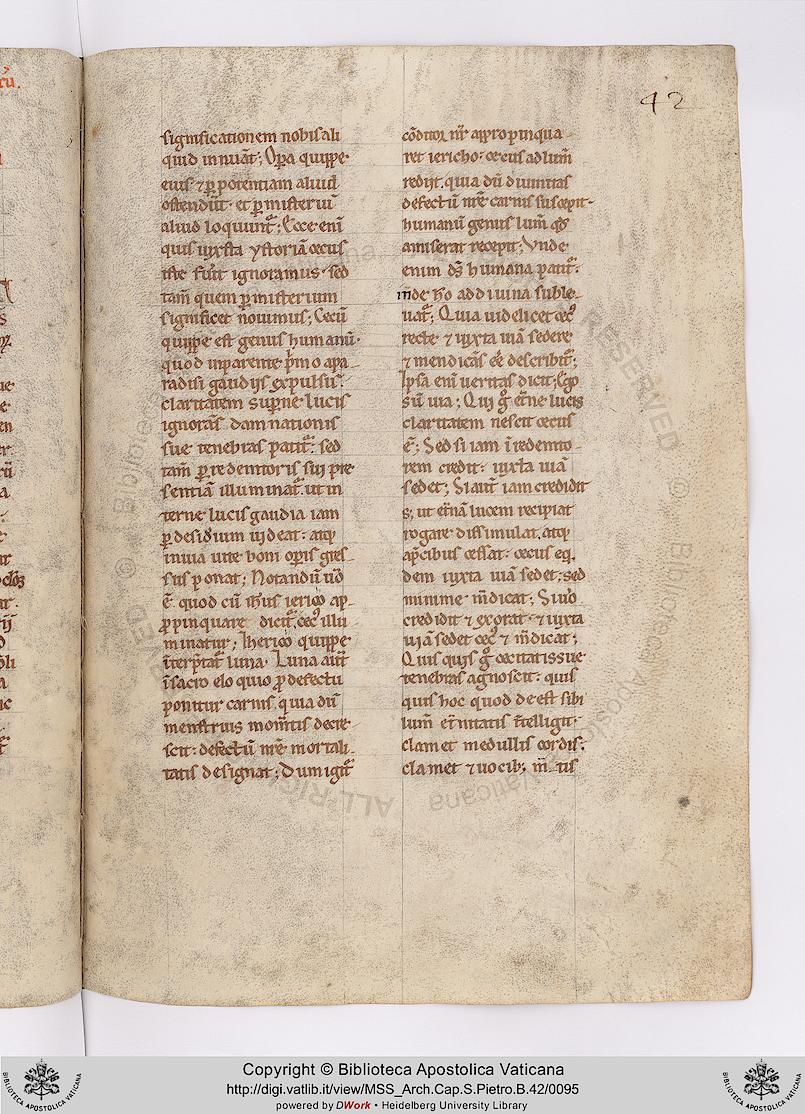 42
significationem nobis ali
quid innuāt; Oꝑa quippe
eius ⁊ ꝑ potentiam aliud
ostendūt· et ꝑ misteriū
aliud loquunt᷑; Ecce enī
quis iuxsta ystoriā cecus
iste fuit ignoramus· sed
tam̄ quem ꝑ misterium
significet nouimus; Cecū
quippe est genus humanū·
quod in parente pͥmo a pa
radisi gaudijs expulsū·
claritatem suꝑne lucis
ignorās damnationis
sue tenebras patit᷑· sed
tam̄ ꝑ redemtoris sui pre
sentiā illuminat᷑. ut in
terne lucis gaudia iam
ꝑ desiderium uideat· atq;
in uia uite boni oꝑis gres
sus ponat; Notandū uō
ē quod cū ihs ierico ap
ꝓpinquare dicit᷑, cec᷒ illu
minatur; Iherico quippe
īterp̄tat᷑ luna· Luna aut̄
ī sacro eloquio ꝓ defectu
ponitur carnis, quia dū
menstruis mom̄tis decre
scit· defectū nr̄e mortali
tatis designat; Dum igit᷑
cōditor nr̄ appropinqua
ret iericho· cecus ad lum̄
redijt. quia dū diuinitas
defectū nr̄e carnis suscepit·
humanū genus lum̄ qd̄
amiserat recepit; Vnde
enim ds̄ humana patit᷑·
inde hō ad diuina suble
uat᷑; Quia uidelicet cec᷒
recte ⁊ iuxta uiā sedere
⁊ mendicās eē describit᷑;
Ipsa enī ueritas dicit; Ego
sū uia; Qui gͦ et̄ne lucis
claritatem nescit cecus
ē; Sed si iam ī redemto
rem credit· iuxta uiā
sedet; Si aut̄ iam credidit
s; ut et̄nā lucem recipiat
rogare dissimulat. atq;
a p̄cibus cessat· cecus eq
dem iuxta uiā sedet· sed
minime m̄dicat; Si uō
credidit ⁊ exorat· ⁊ iuxta
uiā sedet cec᷒ ⁊ m̄dicat;
Quisquis gͦ cecitatis sue
tenebras agnoscit· quis
quis hoc quod deest sibi
lum̄ et̄nitatis ītelligit·
clamet medullis cordis;
clamet ⁊ uocib; m̄tis
Copyright © Biblioteca Apostolica Vaticana
http://digi.vatlib.it/view/MSS_Arch.Cap.S.Pietro.B.42/0095
powered by DWork • Heidelberg University Library